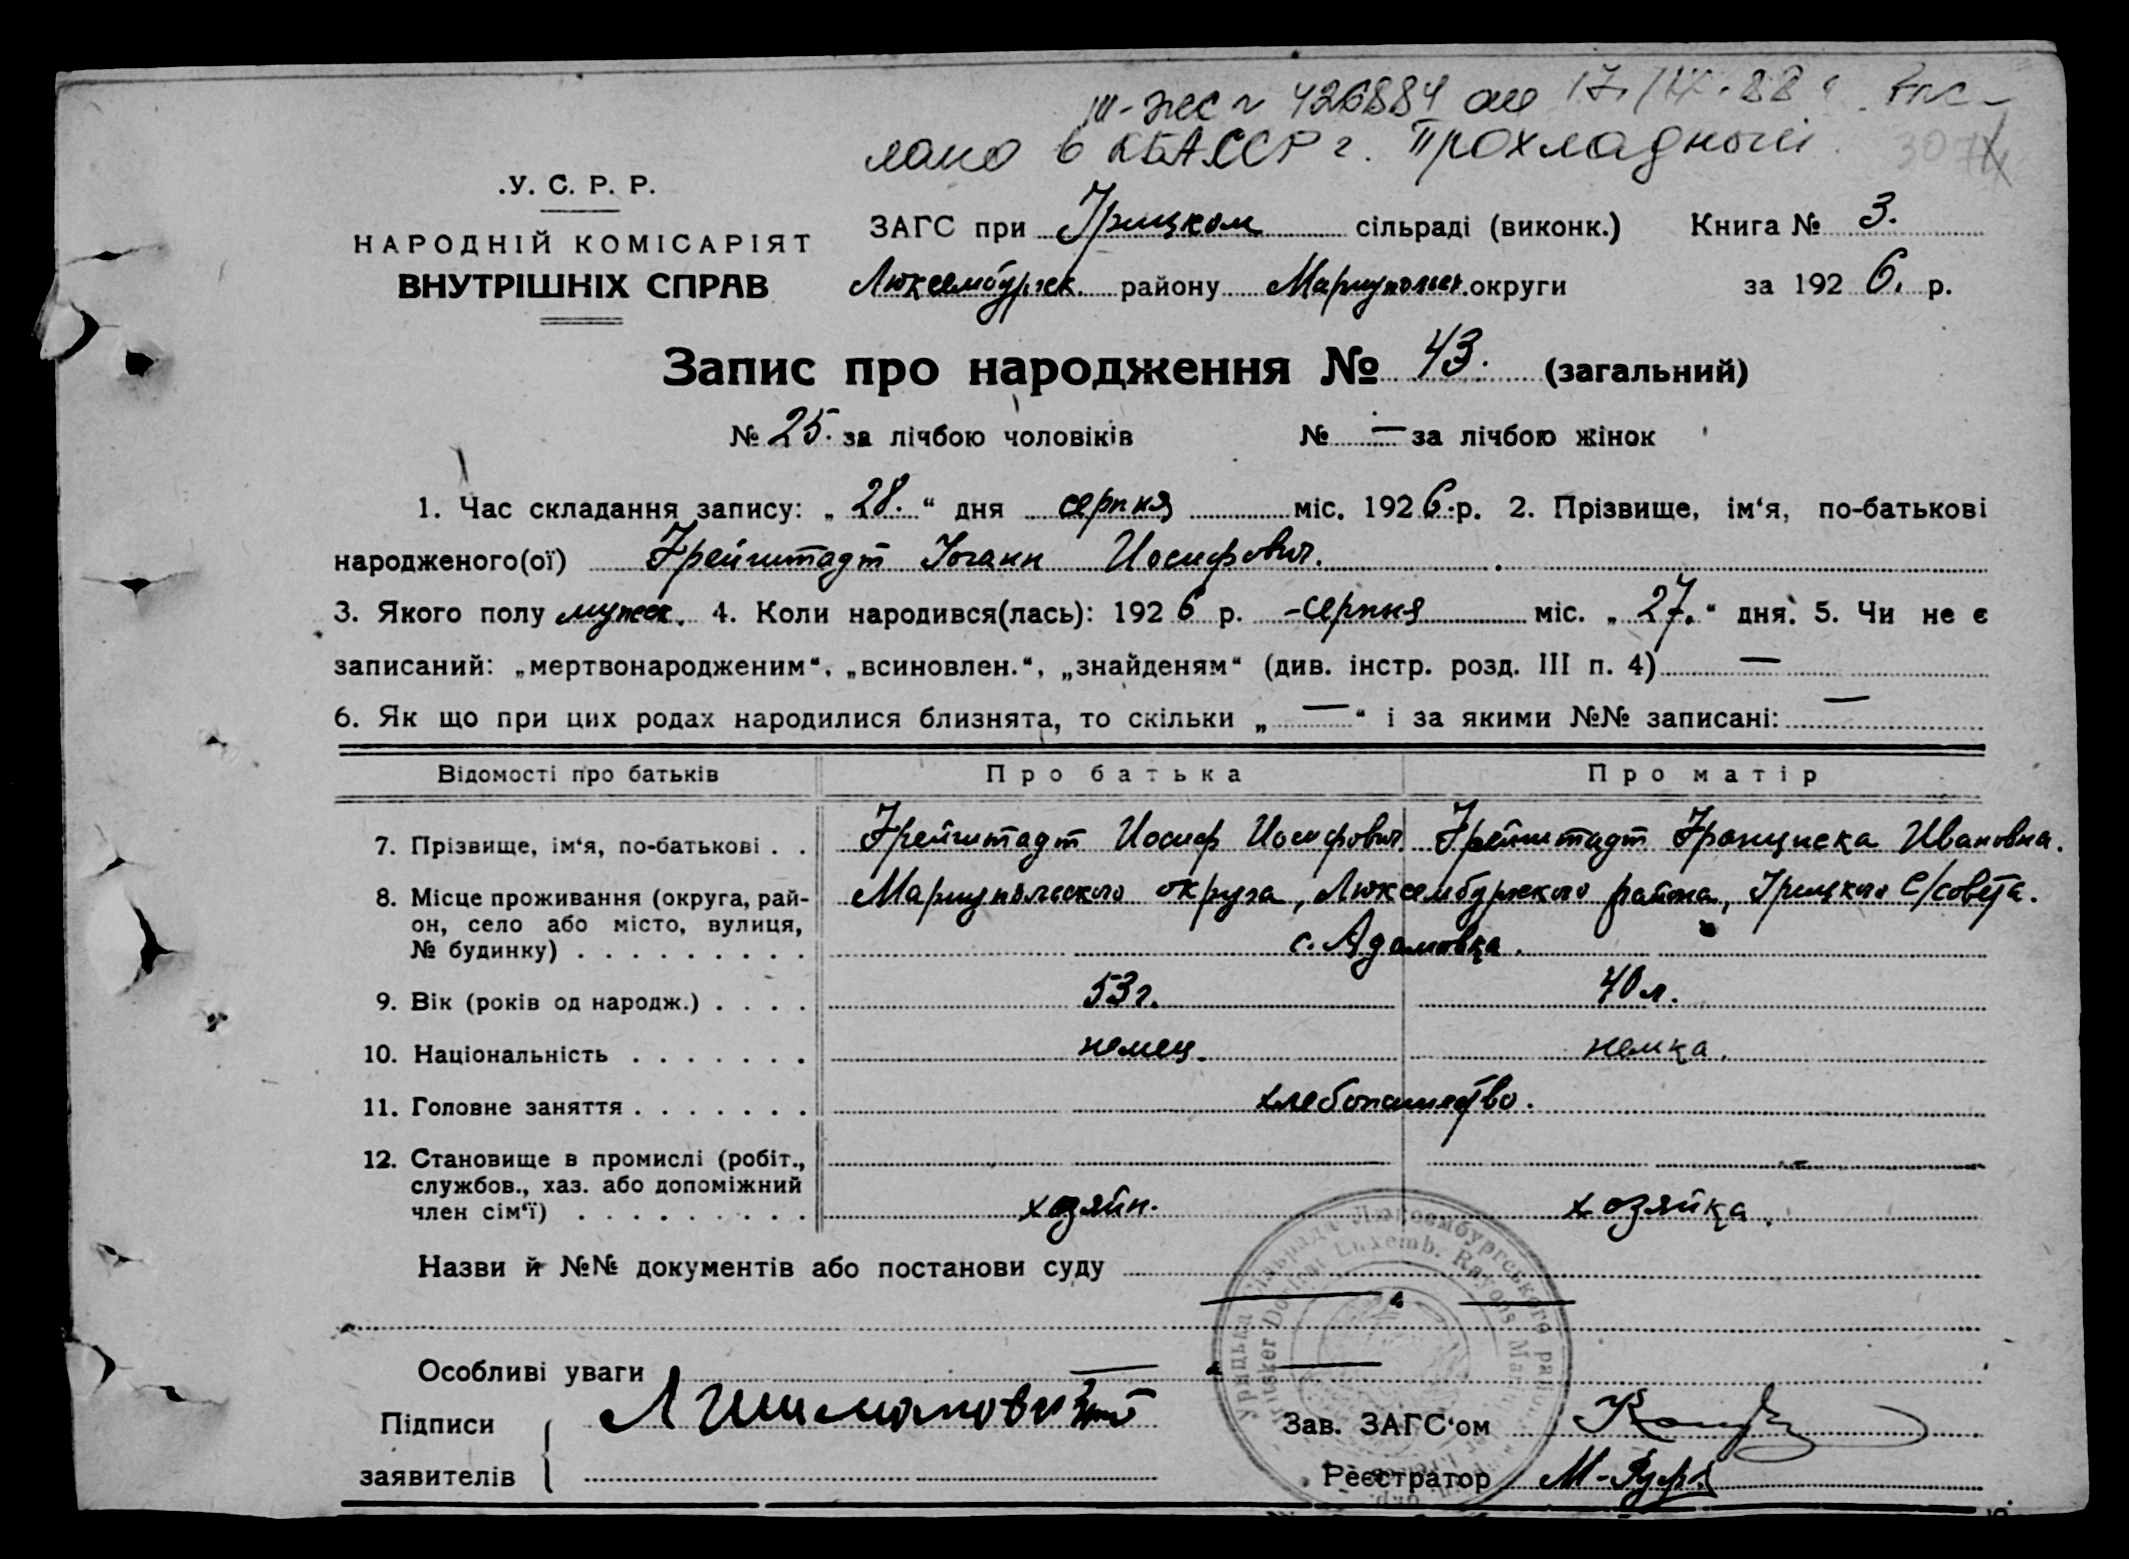 III-жс № 426884 от 17/IX.88 г.
лано в КБАССР г. Прохладный
307
У. С. Р. Р.
НАРОДНІЙ КОМІСАРІЯТ
ВНУТРІШНІХ СПРАВ
ЗАГС при Урицком сільраді (виконк.) Книга № 3.
Люксембургск. району Мариупольск. округи за 1926. р.
Запис про народження № 43. (загальний)
№ 25. за лічбою чоловіків № — за лічбою жінок
1. Час складання запису: „28.“ дня серпня міс. 1926.р. 2. Прізвище, ім‘я, по-батькові
народженого(ої) Грейштадт Іоганн Иосифович.
3. Якого полу мужск. 4. Коли народився(лась): 1926 р. серпня міс. „27.“ дня. 5. Чи не є
записаний: „мертвонародженим“, „всиновлен.“, „знайденям“ (див. інстр. розд. III п. 4) —
6. Як що при цих родах народилися близнята, то скільки „—“ і за якими №№ записані: —
Відомості про батьків Про батька Про матір
7. Прізвище, ім‘я, по-батькові . . Фрейштадт Иосиф Иосифович Фрейштадт Франциска Ивановна.
8. Місце проживання (округа, рай- Мариупольского округа, Люксембургского района, Урицкого с/совета.
он, село або місто, вулиця,
№ будинку) . . . . . . . . . с. Адамовка.
9. Вік (років од народж.) . . . . 53 г. 40 л.
10. Національність . . . . . . . немец. немка.
11. Головне заняття . . . . . . . хлебопашество.
12. Становище в промислі (робіт.,
службов., хаз. або допоміжний
член сім‘ї) . . . . . . . . . хозяйн. хозяйка.
Назви й №№ документів або постанови суду
Особливі уваги
Підписи
заявителів
Зав. ЗАГС‘ом
Реєстратор
Урицька сільрада Люксембургського району